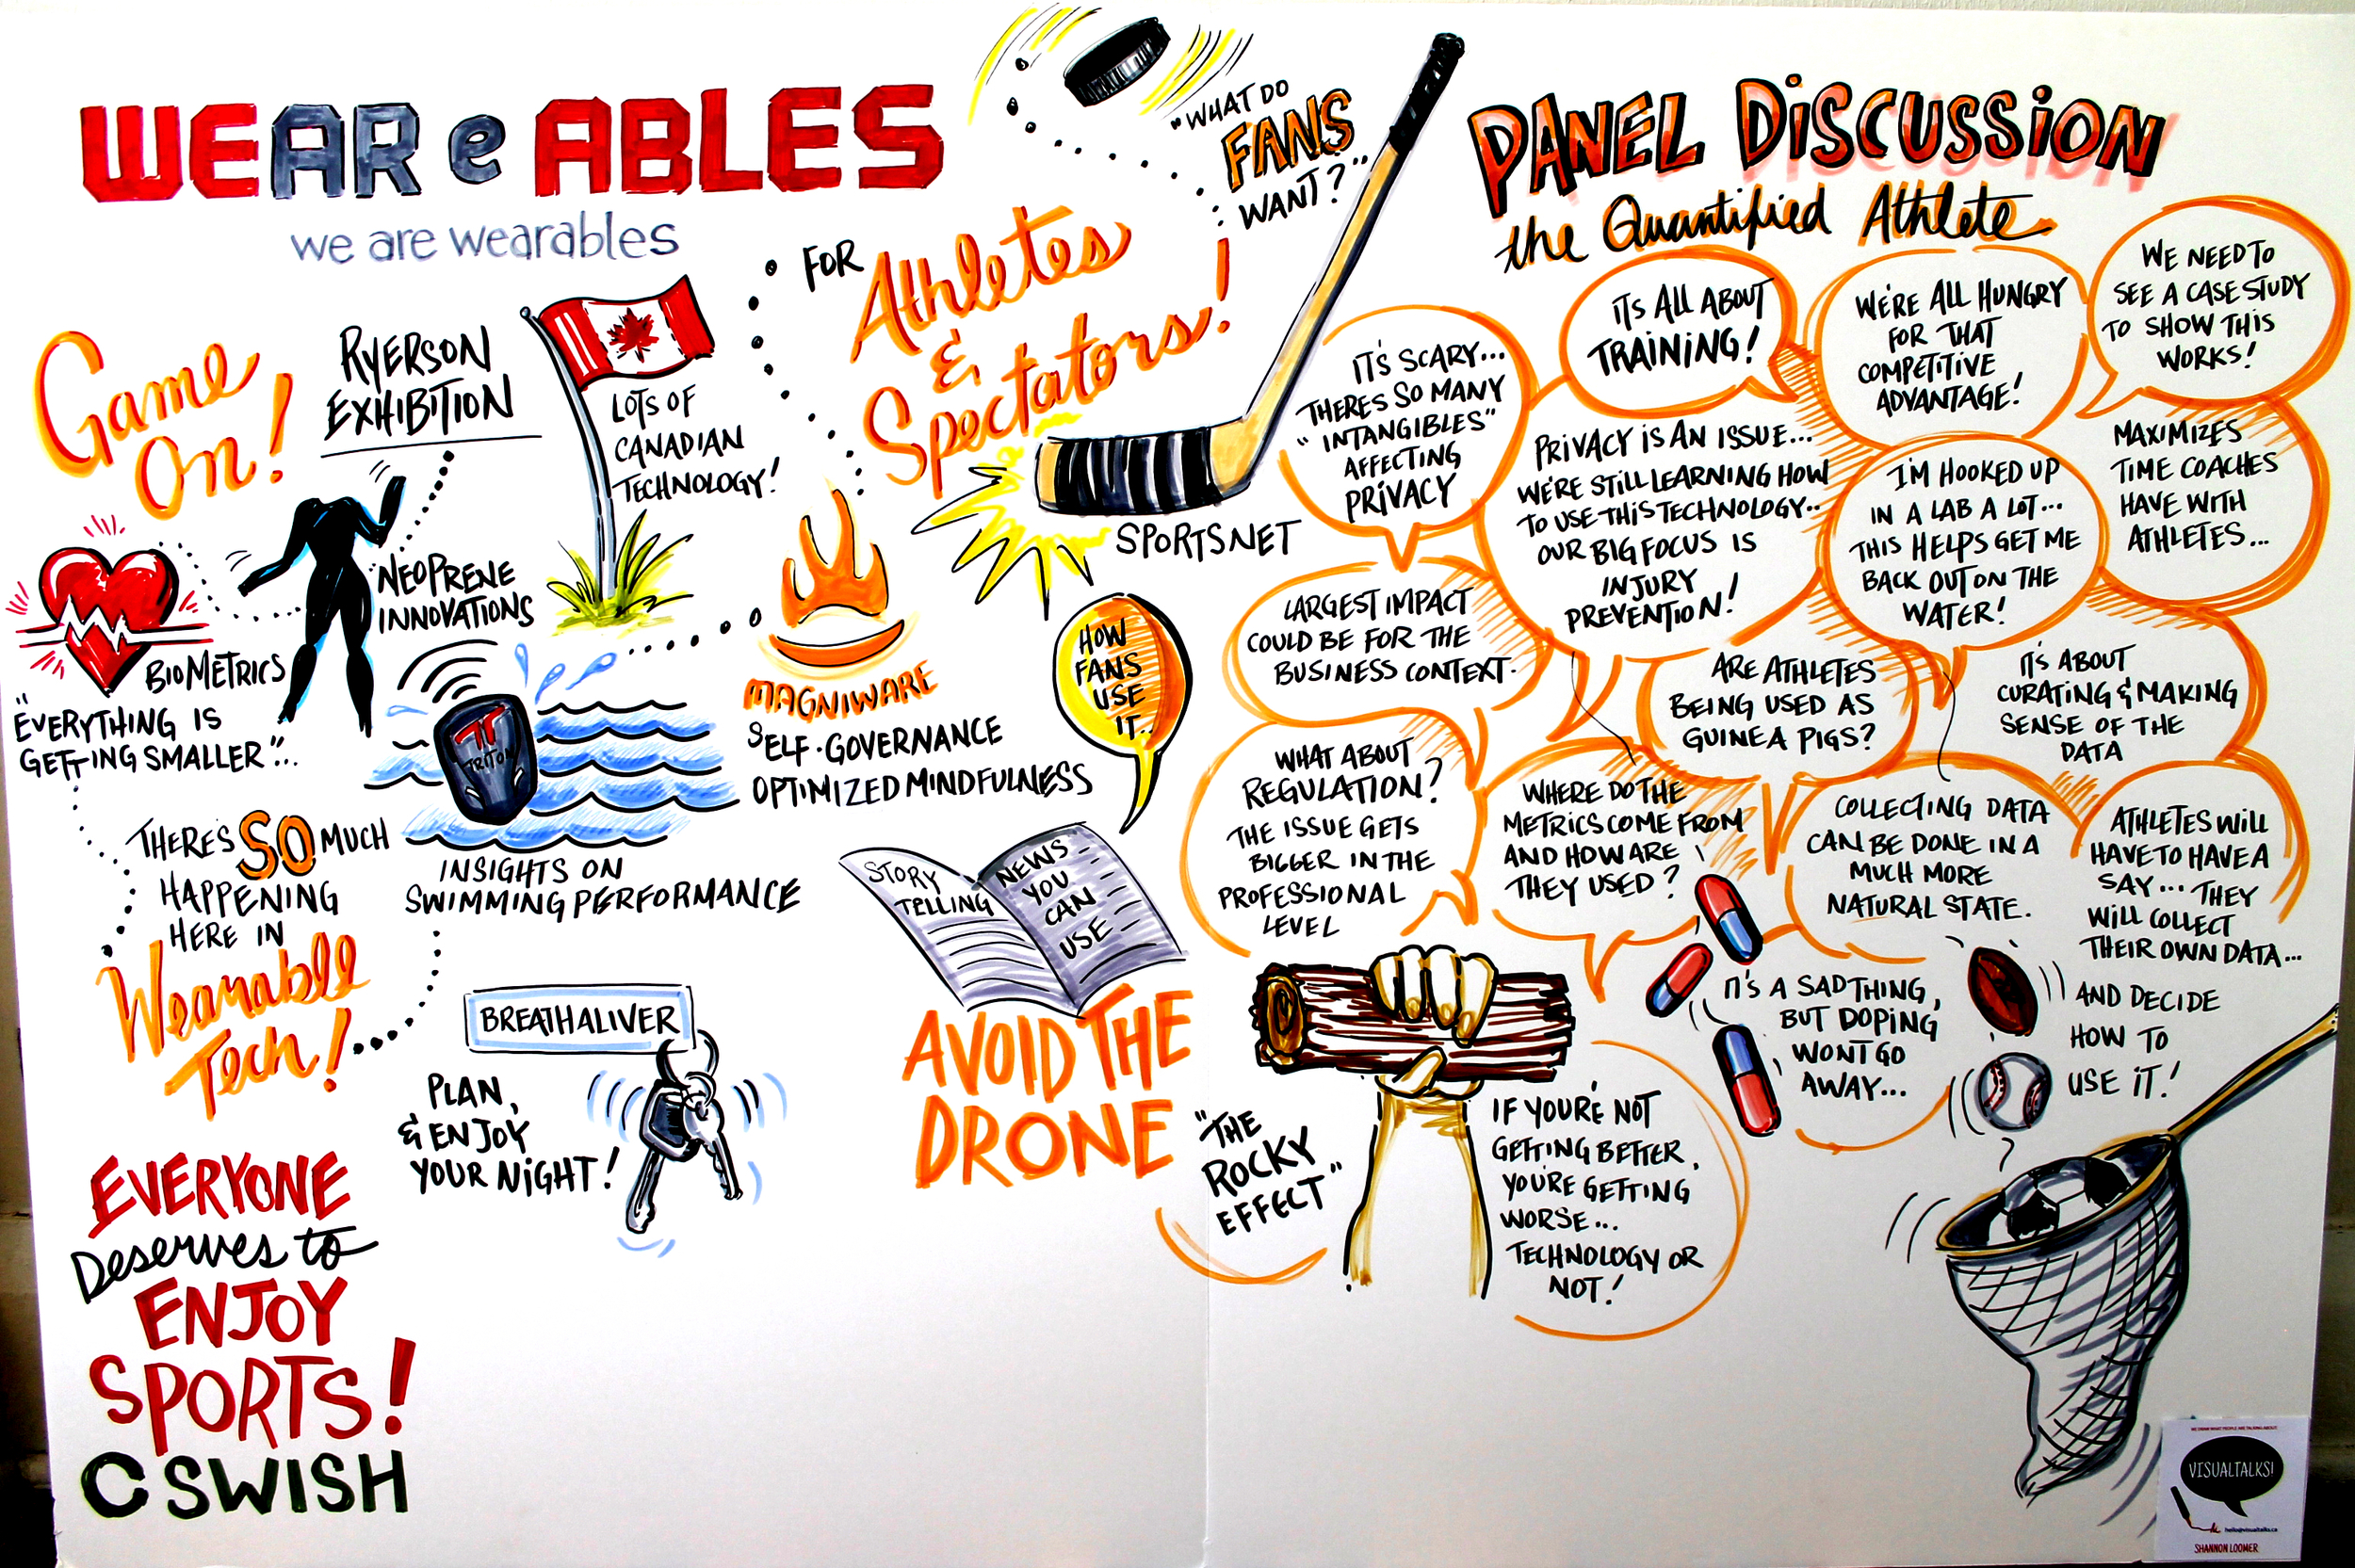 WEAR e ABLES
we are wearables
Game
On!
RYERSON
EXHIBITION
LOTS OF
CANADIAN
TECHNOLOGY!
NEOPRENE
INNOVATIONS
BIOMETRICS
"EVERYTHING IS
GETTING SMALLER"...
TRITON
INSIGHTS ON
SWIMMING PERFORMANCE
THERE'S SO MUCH
HAPPENING
HERE IN
Wearable
Tech!
BREATHALIVER
PLAN,
& ENJOY
YOUR NIGHT!
EVERYONE
Deserves to
ENJOY
SPORTS!
CSWISH
FOR Athletes
&
Spectators!
"WHAT DO
FANS
WANT?"
SPORTSNET
MAGNIWARE
SELF-GOVERNANCE
OPTIMIZED MINDFULNESS
HOW
FANS
USE
IT..
STORY
TELLING
NEWS
YOU
CAN
USE
AVOID THE
DRONE
PANEL DISCUSSION
the Quantified Athlete
IT'S SCARY...
THERES SO MANY
"INTANGIBLES"
AFFECTING
PRIVACY
ITS ALL ABOUT
TRAINING!
WE'RE ALL HUNGRY
FOR THAT
COMPETITIVE
ADVANTAGE!
WE NEED TO
SEE A CASE STUDY
TO SHOW THIS
WORKS!
PRIVACY IS AN ISSUE...
WE'RE STILL LEARNING HOW
TO USE THIS TECHNOLOGY...
OUR BIG FOCUS IS
INJURY
PREVENTION!
I'M HOOKED UP
IN A LAB A LOT...
THIS HELPS GET ME
BACK OUT ON THE
WATER!
MAXIMIZES
TIME COACHES
HAVE WITH
ATHLETES...
LARGEST IMPACT
COULD BE FOR THE
BUSINESS CONTEXT.
ARE ATHLETES
BEING USED AS
GUINEA PIGS?
IT'S ABOUT
CURATING & MAKING
SENSE OF THE
DATA
WHAT ABOUT
REGULATION?
THE ISSUE GETS
BIGGER IN THE
PROFESSIONAL
LEVEL
WHERE DO THE
METRICS COME FROM
AND HOW ARE
THEY USED?
COLLECTING DATA
CAN BE DONE IN A
MUCH MORE
NATURAL STATE.
ATHLETES WILL
HAVE TO HAVE A
SAY... THEY
WILL COLLECT
THEIR OWN DATA...
AND DECIDE
HOW TO
USE IT!
IT'S A SAD THING,
BUT DOPING
WONT GO
AWAY...
"THE
ROCKY
EFFECT"
IF YOU'RE NOT
GETTING BETTER,
YOU'RE GETTING
WORSE...
TECHNOLOGY OR
NOT!
WE DRAW WHAT PEOPLE ARE TALKING ABOUT!
VISUALTALKS!
hello@visualtalks.ca
SHANNON LOOMER